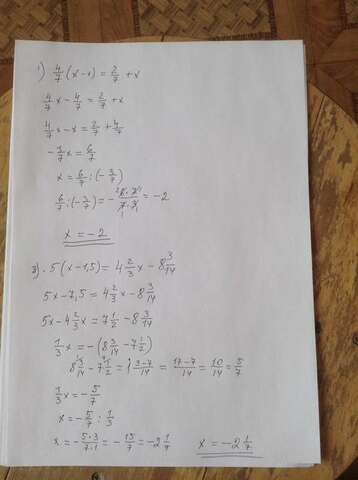 1) 4/7 (x-1) = 2/7 + x
4/7 x - 4/7 = 2/7 + x
4/7 x - x = 2/7 + 4/7
- 3/7 x = 6/7
x = 6/7 : (- 3/7)
6/7 : (- 3/7) = - 6·7/7·3 = -2
x = -2
2) 5(x-1,5) = 4 2/3 x - 8 3/14
5x - 7,5 = 4 2/3 x - 8 3/14
5x - 4 2/3 x = 7 1/2 - 8 3/14
1/3 x = -(8 3/14 - 7 1/2)
8 3/14 - 7 1/2 = 1 3-7/14 = 17-7/14 = 10/14 = 5/7
1/3 x = - 5/7
x = - 5/7 : 1/3
x = - 5·3/7·1 = - 15/7 = -2 1/7 x = -2 1/7